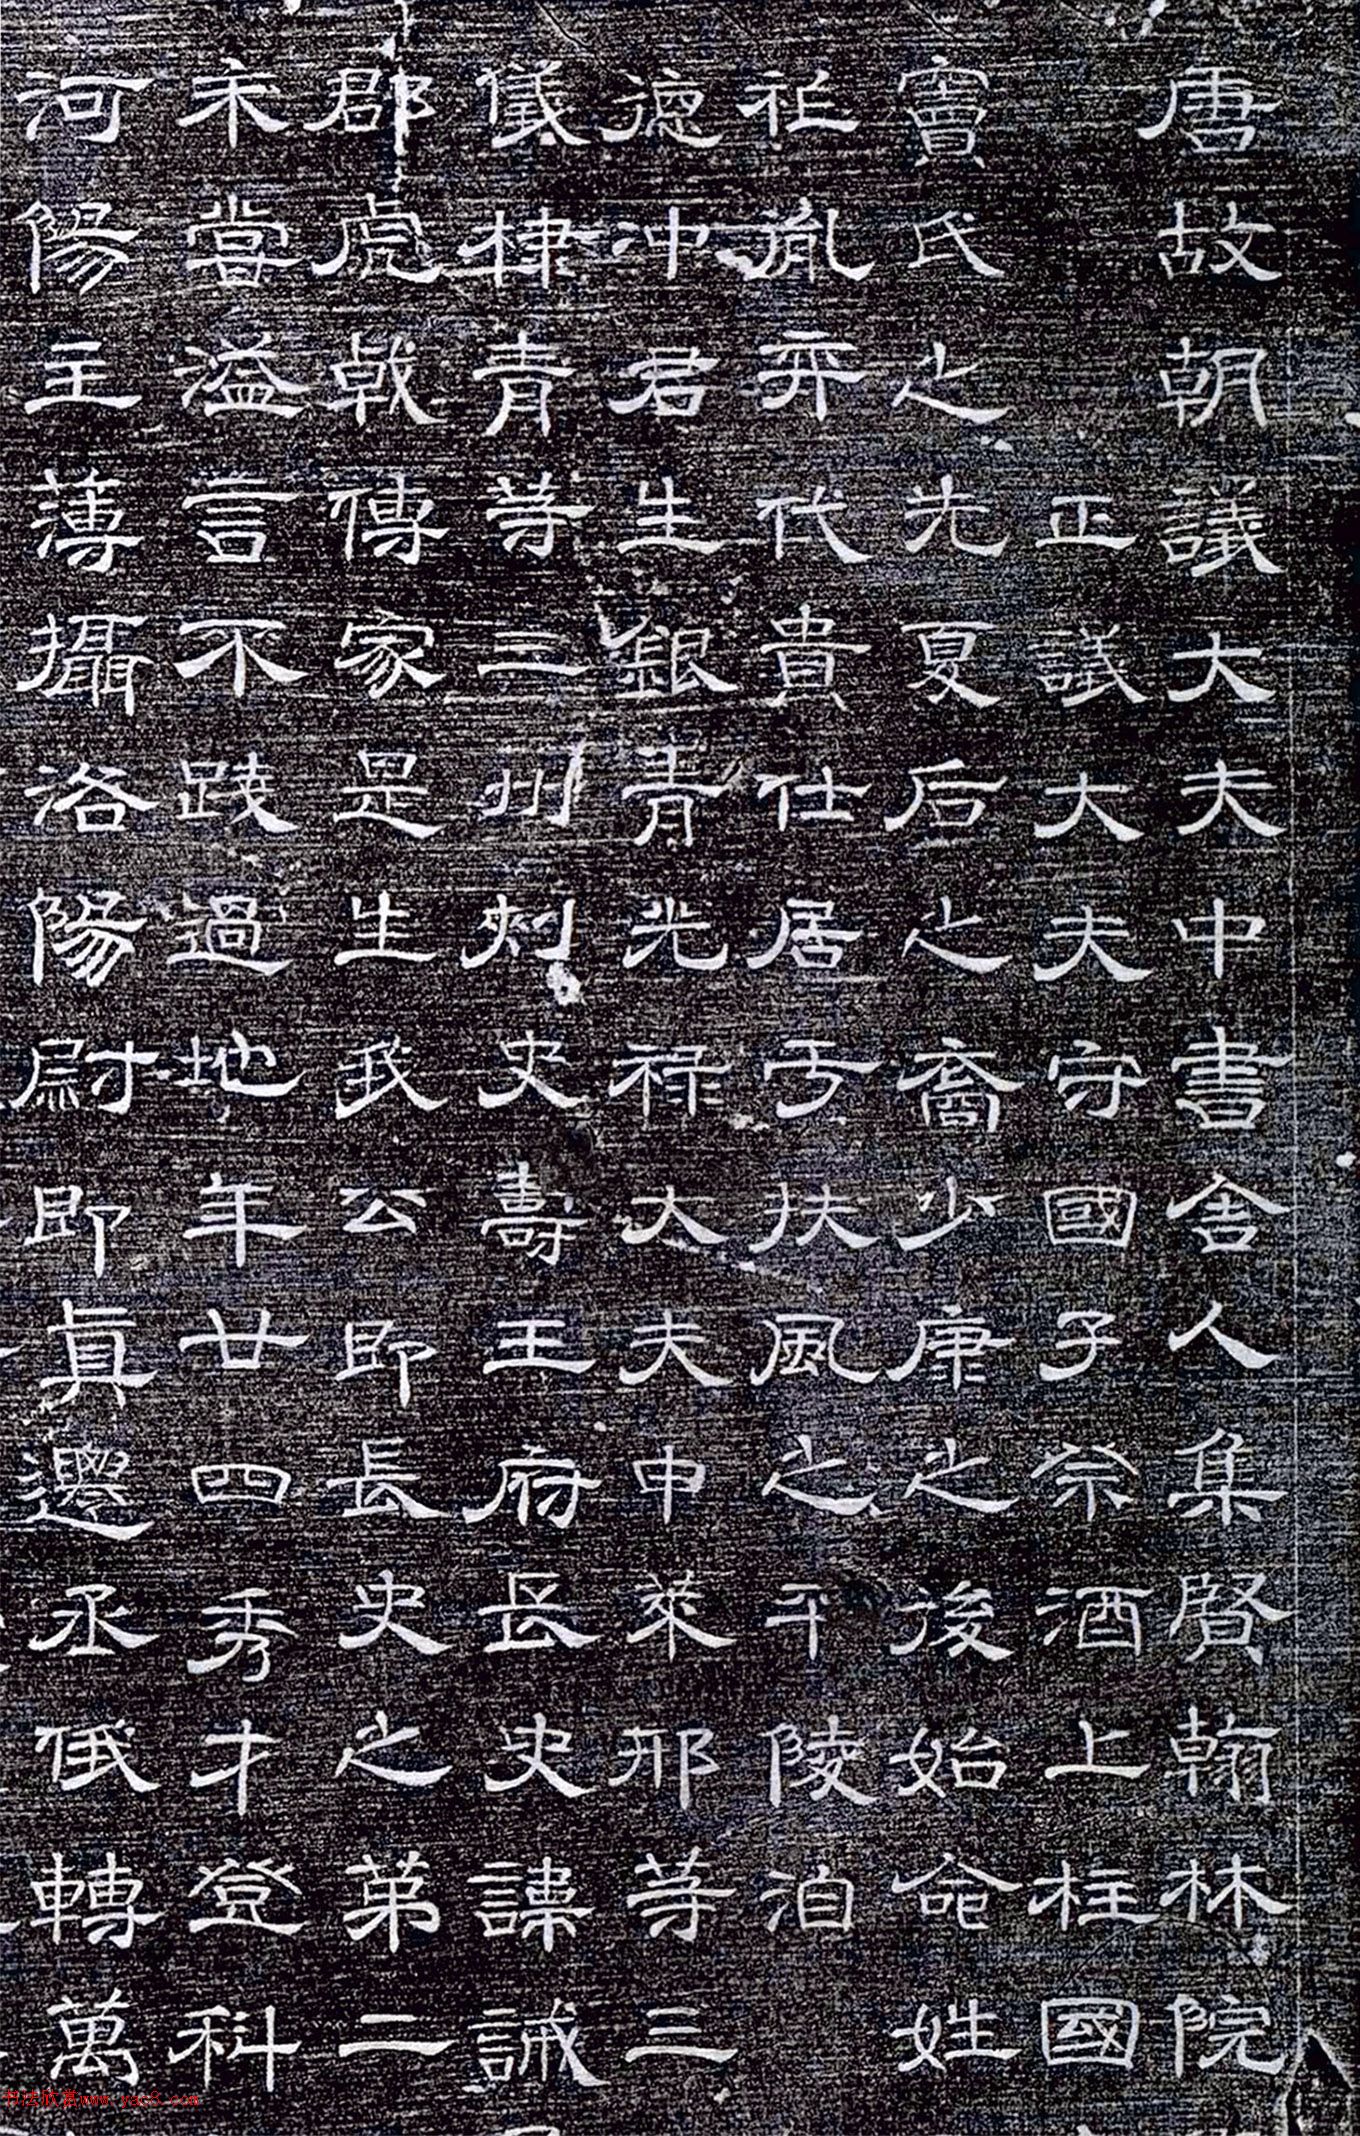 唐故朝議大夫中書舍人集賢翰林院
正議大夫守國子祭酒上柱國
竇氏之先夏后之裔少康之後始命姓
祉胤弈代貴仕居于扶風之平陵泊
德冲君生銀青光禄大夫申萊邢等三
儀棣青等三州刾史壽王府長史諱誡
郡虎戟傳家是生我公即長史之第二
未嘗溢言不踐過地年廿四秀才登科
河陽主薄攝洛陽尉即真遷丞俄轉萬
书法欣赏www.yac8.com